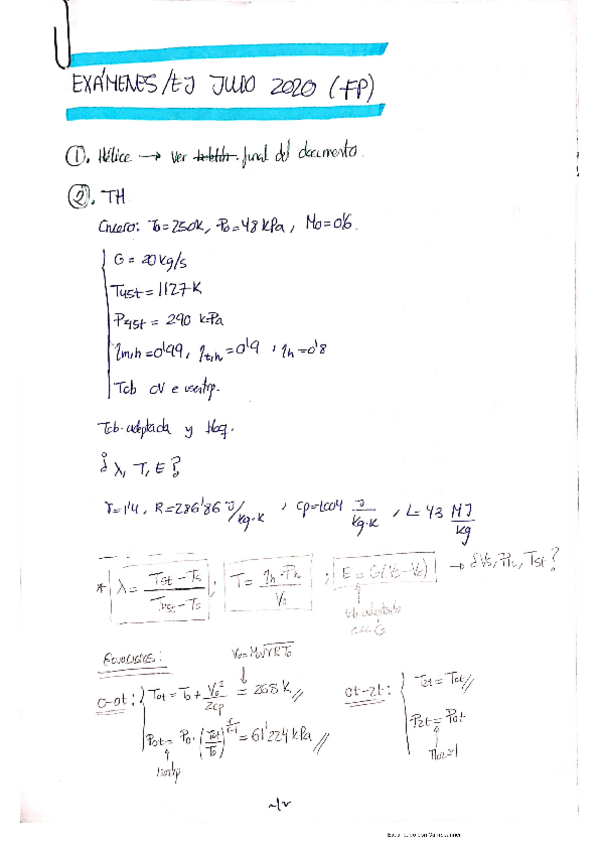 EXÁMENES/EJ JULIO 2020 (FP)
①. Hélice → Ver final del documento.
②. TH
Crucero: T0=250K, P0=48 kPa, M0=0'6.
G = 20 kg/s
T45t = 1127 K
P45t = 290 kPa
ηm,h=0'99, ηt,h=0'9, ηh=0'8
Tcb CV e isentrp.
Tcb. adaptada y Hbq.
¿ λ, T, E ?
γ=1'4, R=286'86 J/kg·K, cp=1004 J/kg·K, L=43 MJ/kg
* λ = (T5t - Ts)/(T45t - Ts) ; T = ηh · Ph/V0 ; E = G(Vs - V0) → ¿Vs, Ph, T5t?
tcb adaptada
Ecuaciones: V0=M0√γRT0
0-0t: T0t = T0 + V0²/2cp = 268 K // 0t-2t: T2t = T0t //
P0t = P0·(T0t/T0)^(γ/γ-1) = 61'224 kPa // P2t = P0t
Isentrp